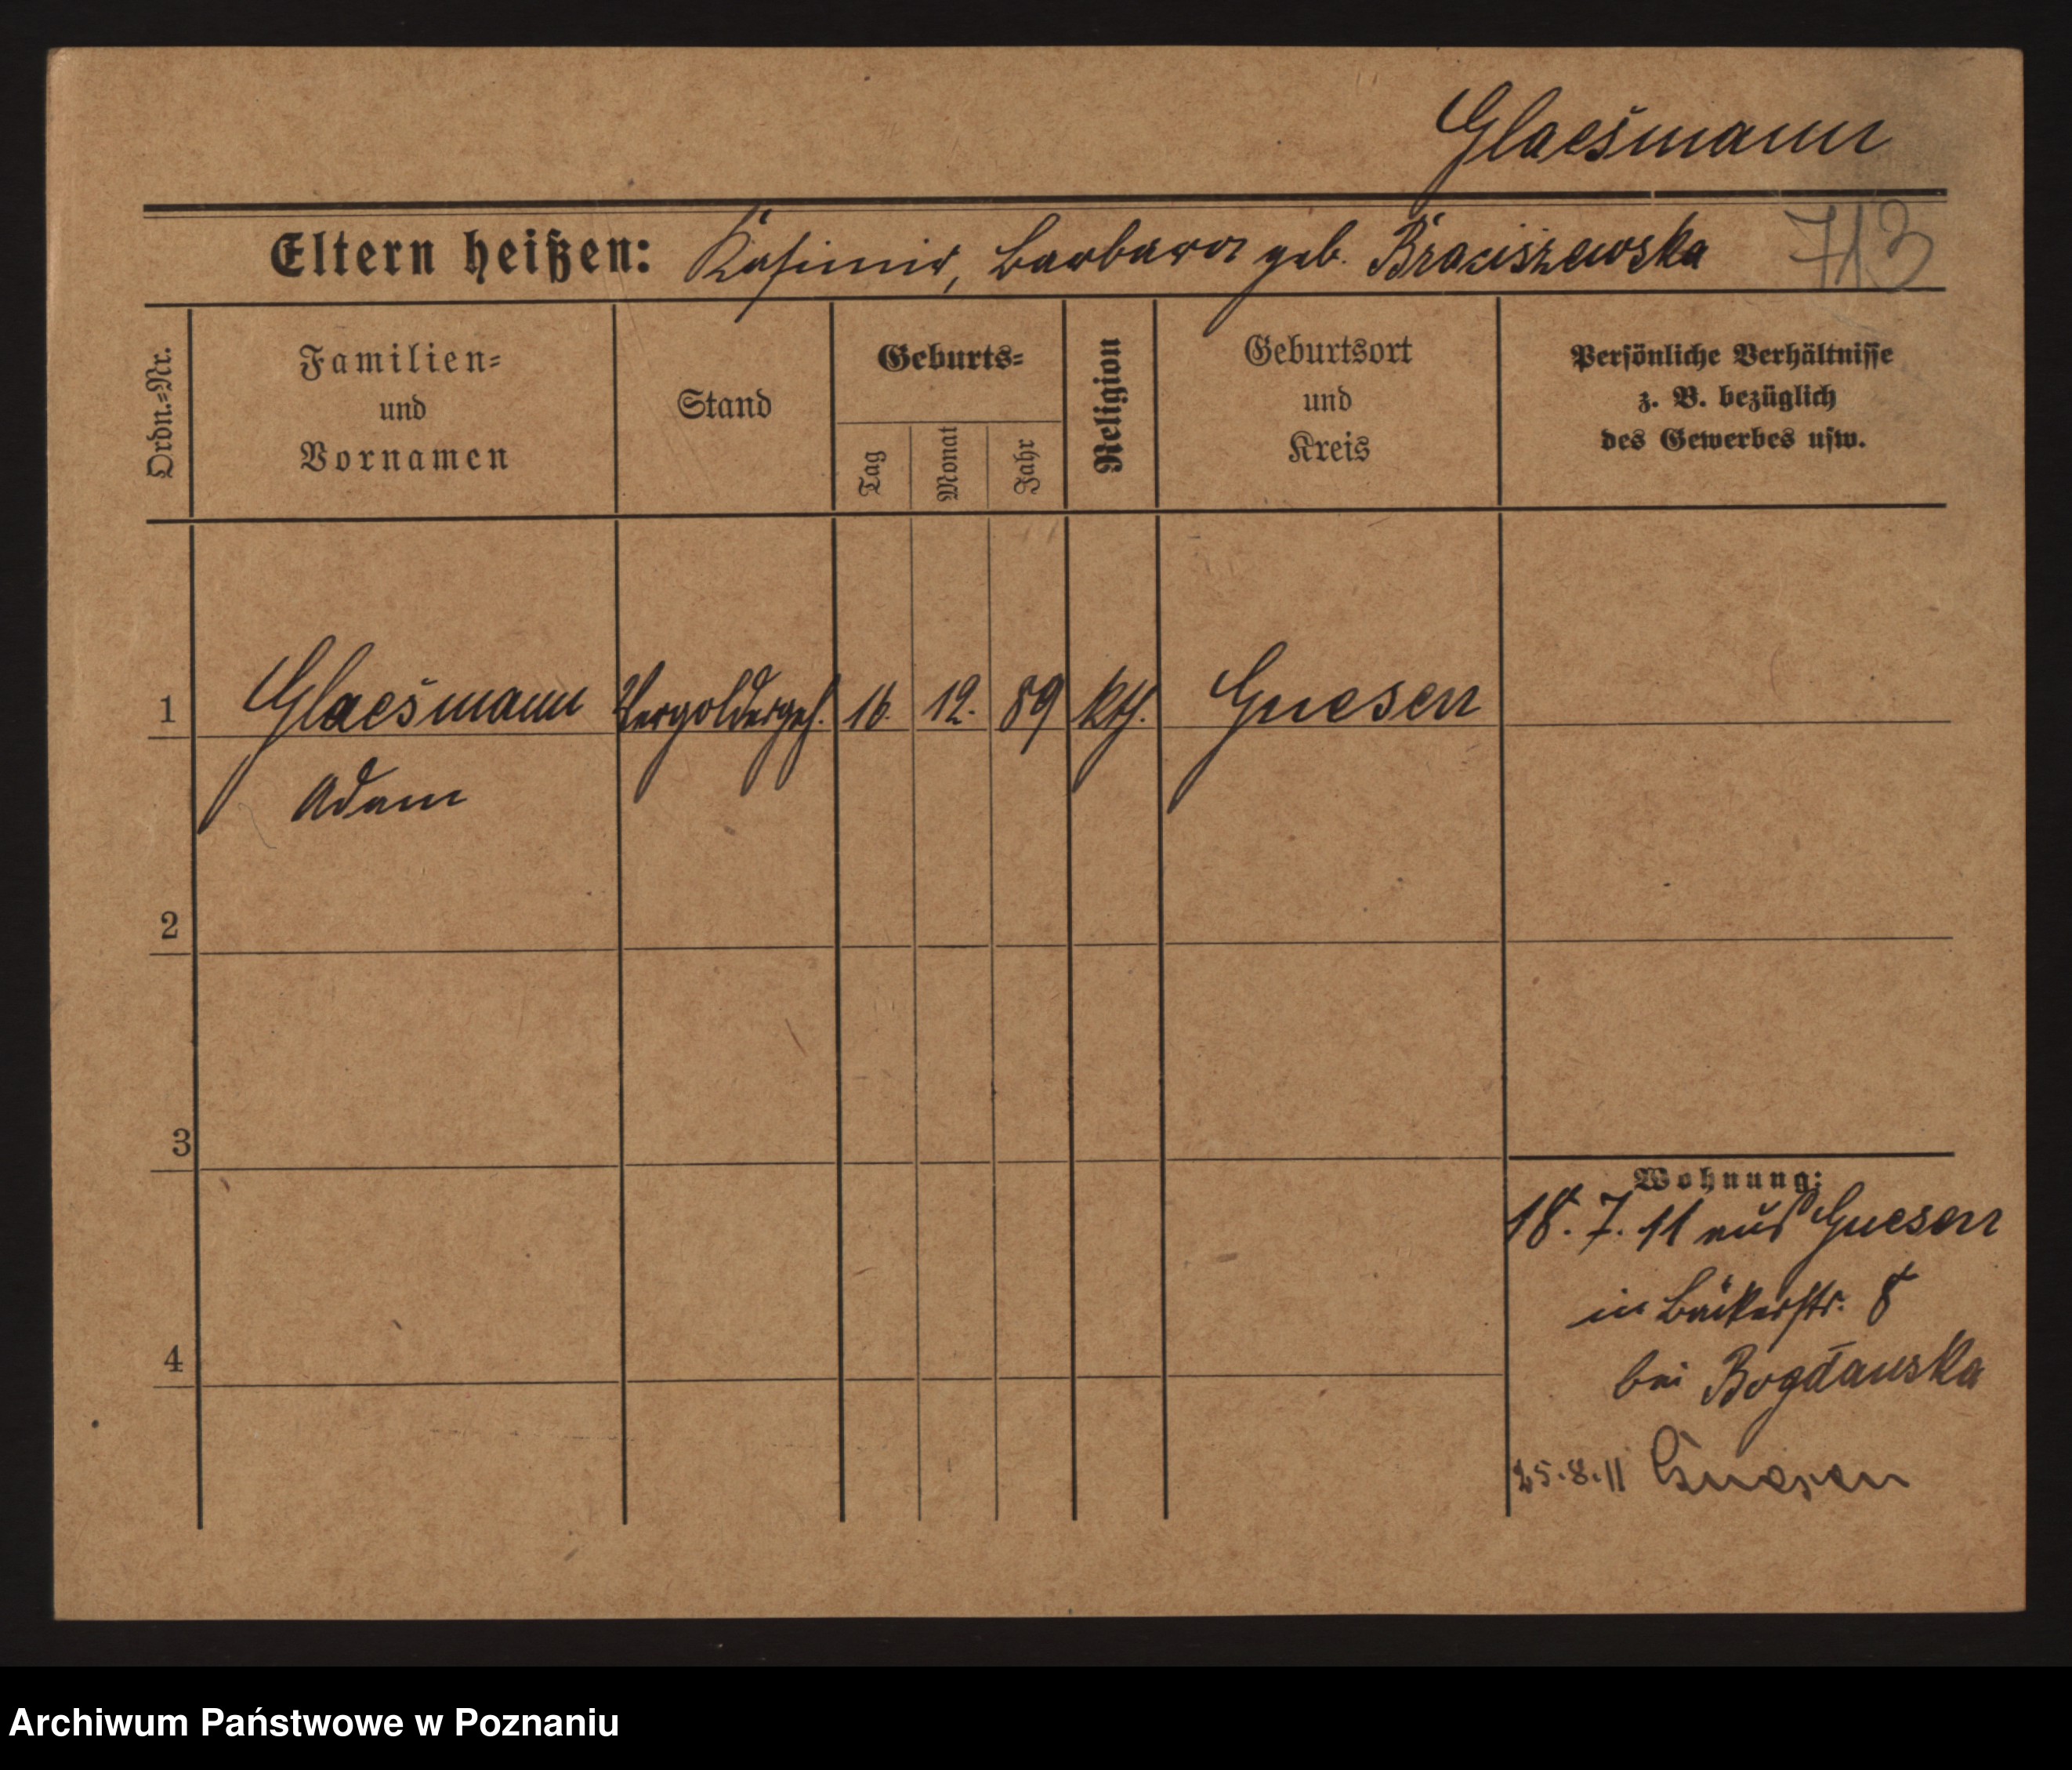 Glaesmann
Eltern heißen: Kasimir, Barbara geb. Braciszewska 713
Ordn.-Nr.
Familien-
und
Vornamen
Stand
Geburts-
Tag
Monat
Jahr
Religion
Geburtsort
und
Kreis
Persönliche Verhältnisse
z. B. bezüglich
des Gewerbes usw.
1 Glaesmann Vergoldergeh. 16. 12. 89 kth. Gnesen
Adam
2
3
4
Wohnung:
18. 7. 11 aus Gnesen
in Bäckerstr. 8
bei Bogdanska
25.8.11 Gnesen
Archiwum Państwowe w Poznaniu